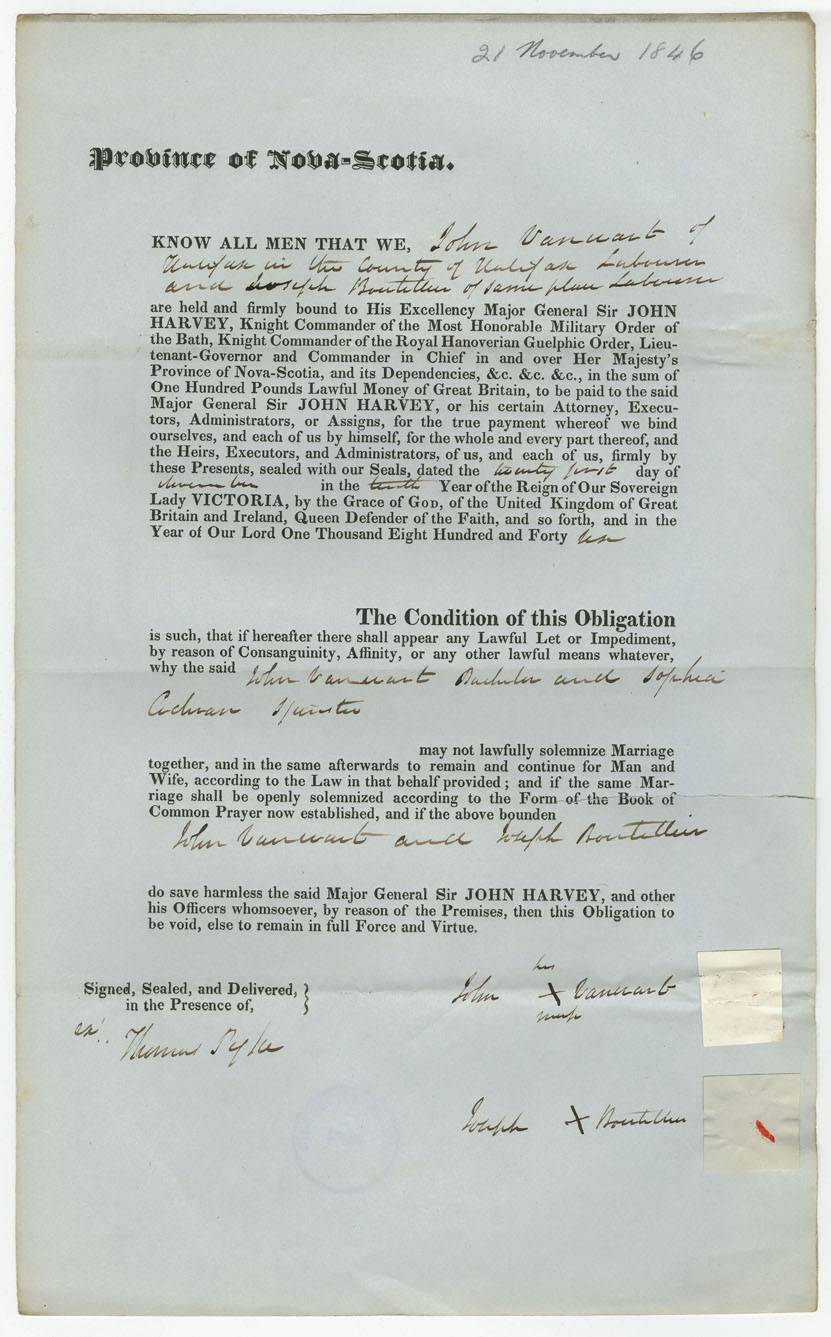 21 November 1846
Province of Nova-Scotia.
KNOW ALL MEN THAT WE, John Vanwart of
Halifax in the County of Halifax Labourer
and Joseph Boutellier of same place Labourer
are held and firmly bound to His Excellency Major General Sir JOHN
HARVEY, Knight Commander of the Most Honorable Military Order of
the Bath, Knight Commander of the Royal Hanoverian Guelphic Order, Lieu-
tenant-Governor and Commander in Chief in and over Her Majesty's
Province of Nova-Scotia, and its Dependencies, &c. &c. &c., in the sum of
One Hundred Pounds Lawful Money of Great Britain, to be paid to the said
Major General Sir JOHN HARVEY, or his certain Attorney, Execu-
tors, Administrators, or Assigns, for the true payment whereof we bind
ourselves, and each of us by himself, for the whole and every part thereof, and
the Heirs, Executors, and Administrators, of us, and each of us, firmly by
these Presents, sealed with our Seals, dated the twenty first day of
November in the tenth Year of the Reign of Our Sovereign
Lady VICTORIA, by the Grace of GOD, of the United Kingdom of Great
Britain and Ireland, Queen Defender of the Faith, and so forth, and in the
Year of Our Lord One Thousand Eight Hundred and Forty six
The Condition of this Obligation
is such, that if hereafter there shall appear any Lawful Let or Impediment,
by reason of Consanguinity, Affinity, or any other lawful means whatever,
why the said John Vanwart Bachelor and Sophia
Cochran Spinster
may not lawfully solemnize Marriage
together, and in the same afterwards to remain and continue for Man and
Wife, according to the Law in that behalf provided; and if the same Mar-
riage shall be openly solemnized according to the Form of the Book of
Common Prayer now established, and if the above bounden
John Vanwart and Joseph Boutellier
do save harmless the said Major General Sir JOHN HARVEY, and other
his Officers whomsoever, by reason of the Premises, then this Obligation to
be void, else to remain in full Force and Virtue.
Signed, Sealed, and Delivered,
in the Presence of,
Thomas Pyke
his
John X Vanwart
mark
Joseph X Boutellier